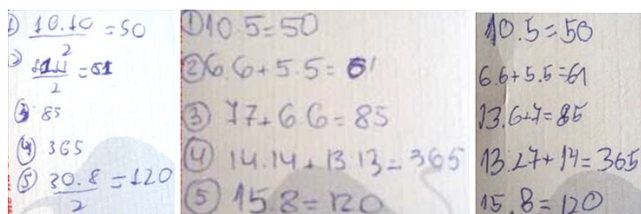 ① 10.10 = 50
2
② 11.11 = 61
2
③ 85
④ 365
⑤ 30.8 = 120
2
① 10.5=50
② 6.6+5.5=61
③ 77+66=85
④ 14.14+13.13=365
⑤ 15.8=120
10.5=50
6.6+5.5=61
13.6+7=85
13.27+14=365
15.8=120